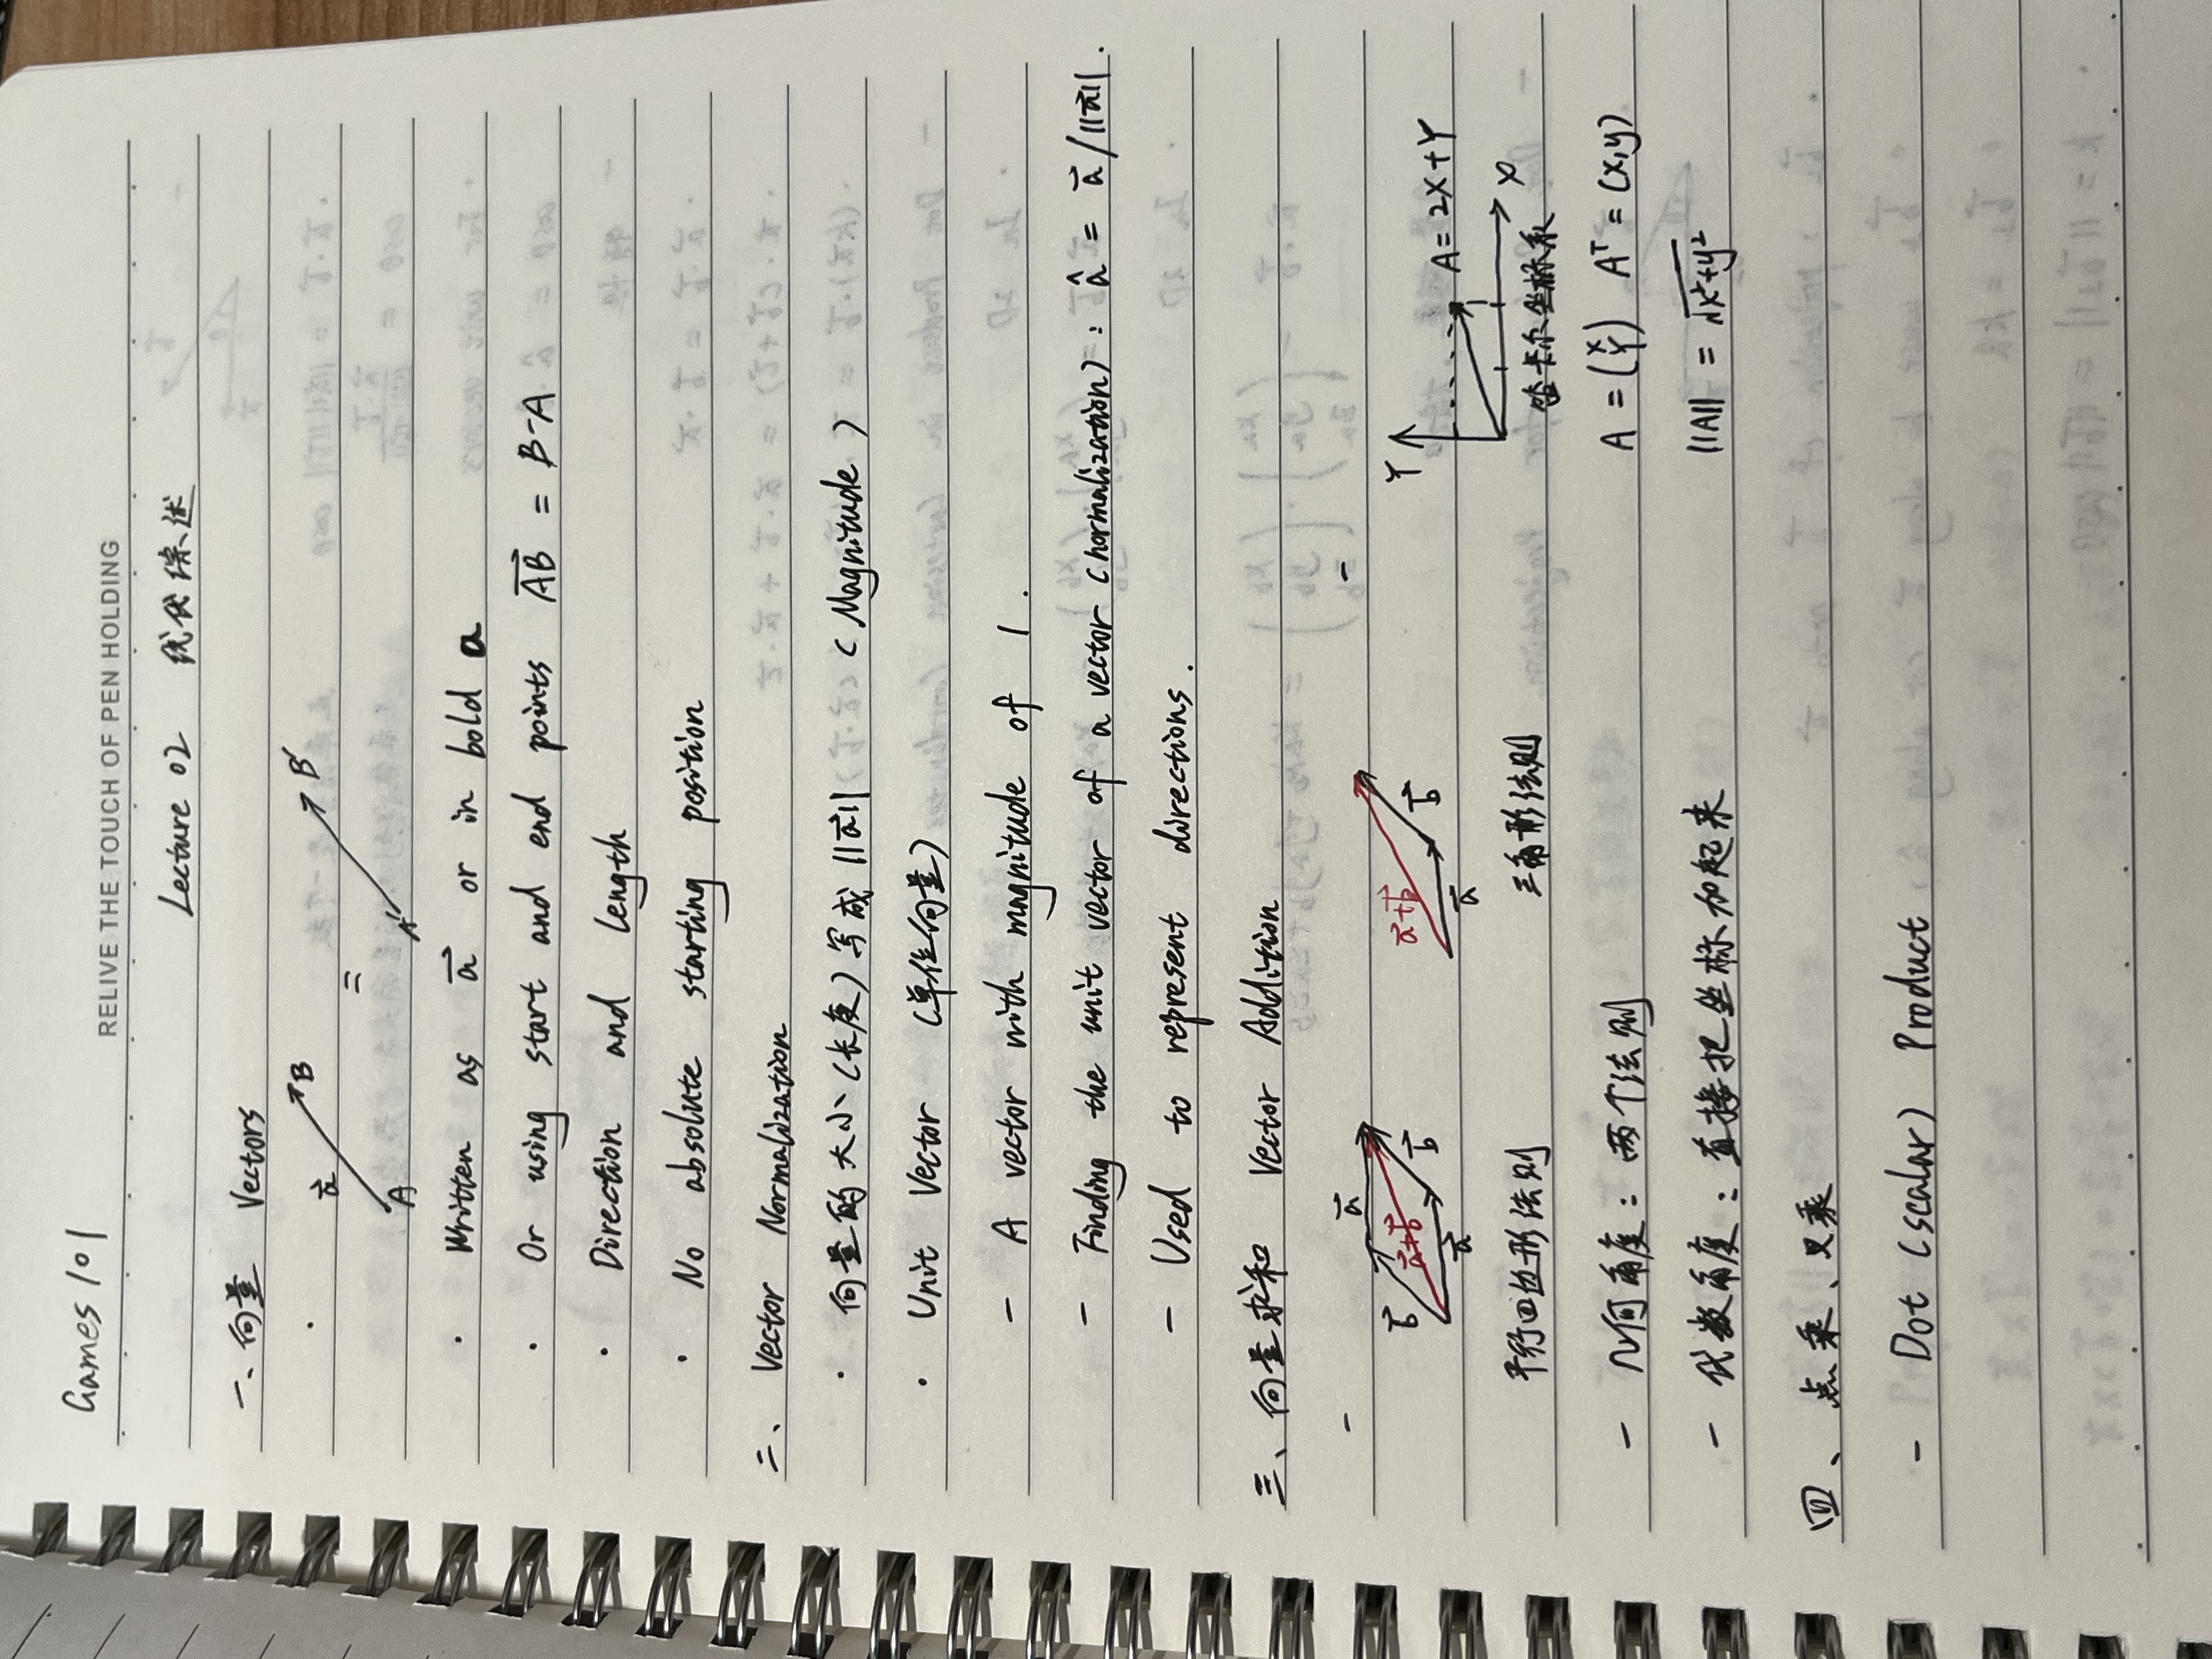 Games 101
RELIVE THE TOUCH OF PEN HOLDING
Lecture 02 线代综述
一、向量 Vectors
· a⃗ A B = A' B'
· Written as a⃗ or in bold a
· Or using start and end points A⃗B⃗ = B-A
· Direction and Length
· No absolute starting position
二、Vector Normalization
· 向量的大小（长度）写成 ||a⃗|| (Magnitude)
· Unit Vector (单位向量)
- A vector with magnitude of 1.
- Finding the unit vector of a vector (normalization): â = a⃗/||a⃗||.
- Used to represent directions.
三、向量求和 Vector Addition
- b⃗ a⃗ a⃗+b⃗ a⃗ b⃗
a⃗+b⃗ a⃗ b⃗
平行四边形法则 三角形法则
- 几何角度：两个法则
- 代数角度：直接把坐标加起来
- Y A=2X+Y
X
笛卡尔坐标系
A = (x y) Aᵀ = (x,y)
||A|| = √x²+y²
四、点乘、叉乘
- Dot (scalar) Product